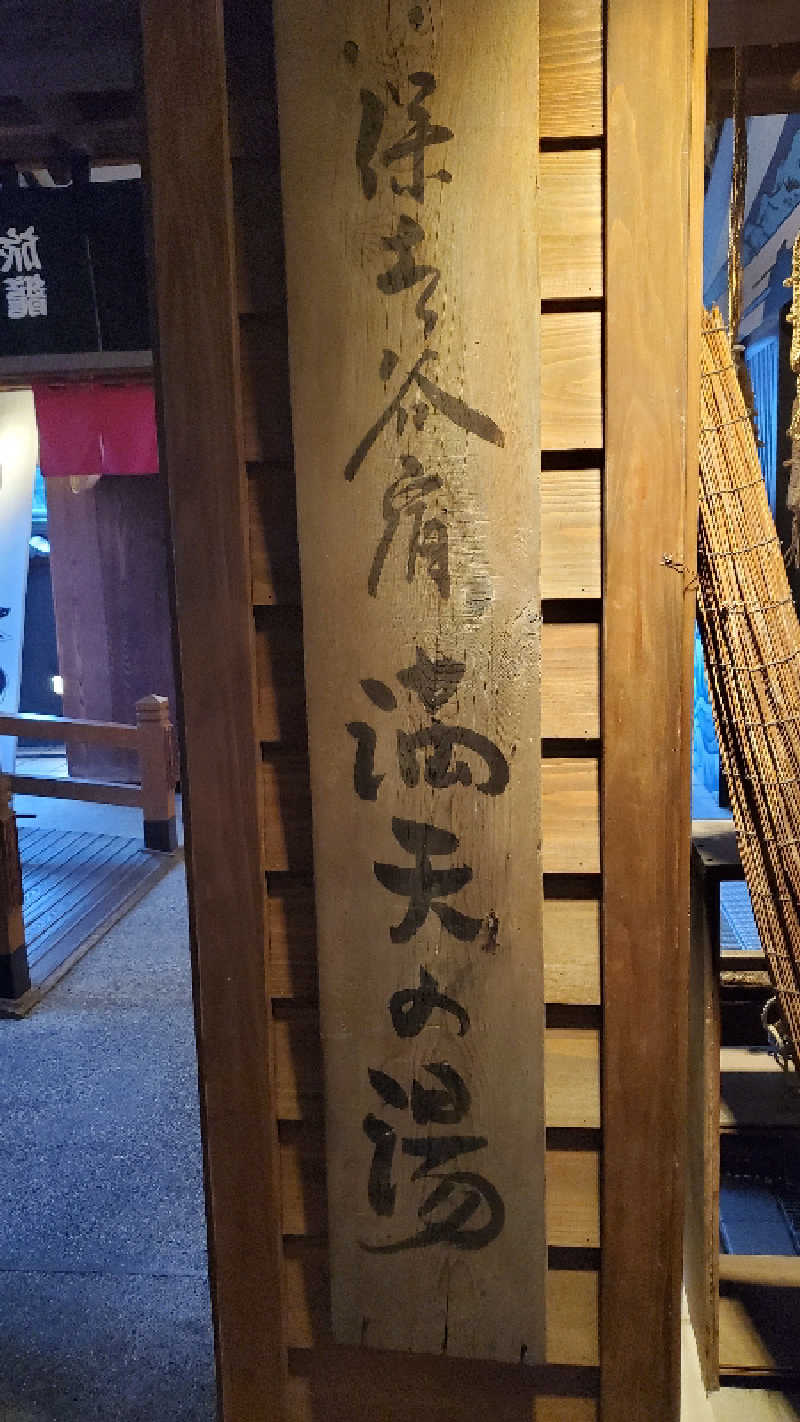 保土ヶ谷宿 満天の湯
旅籠